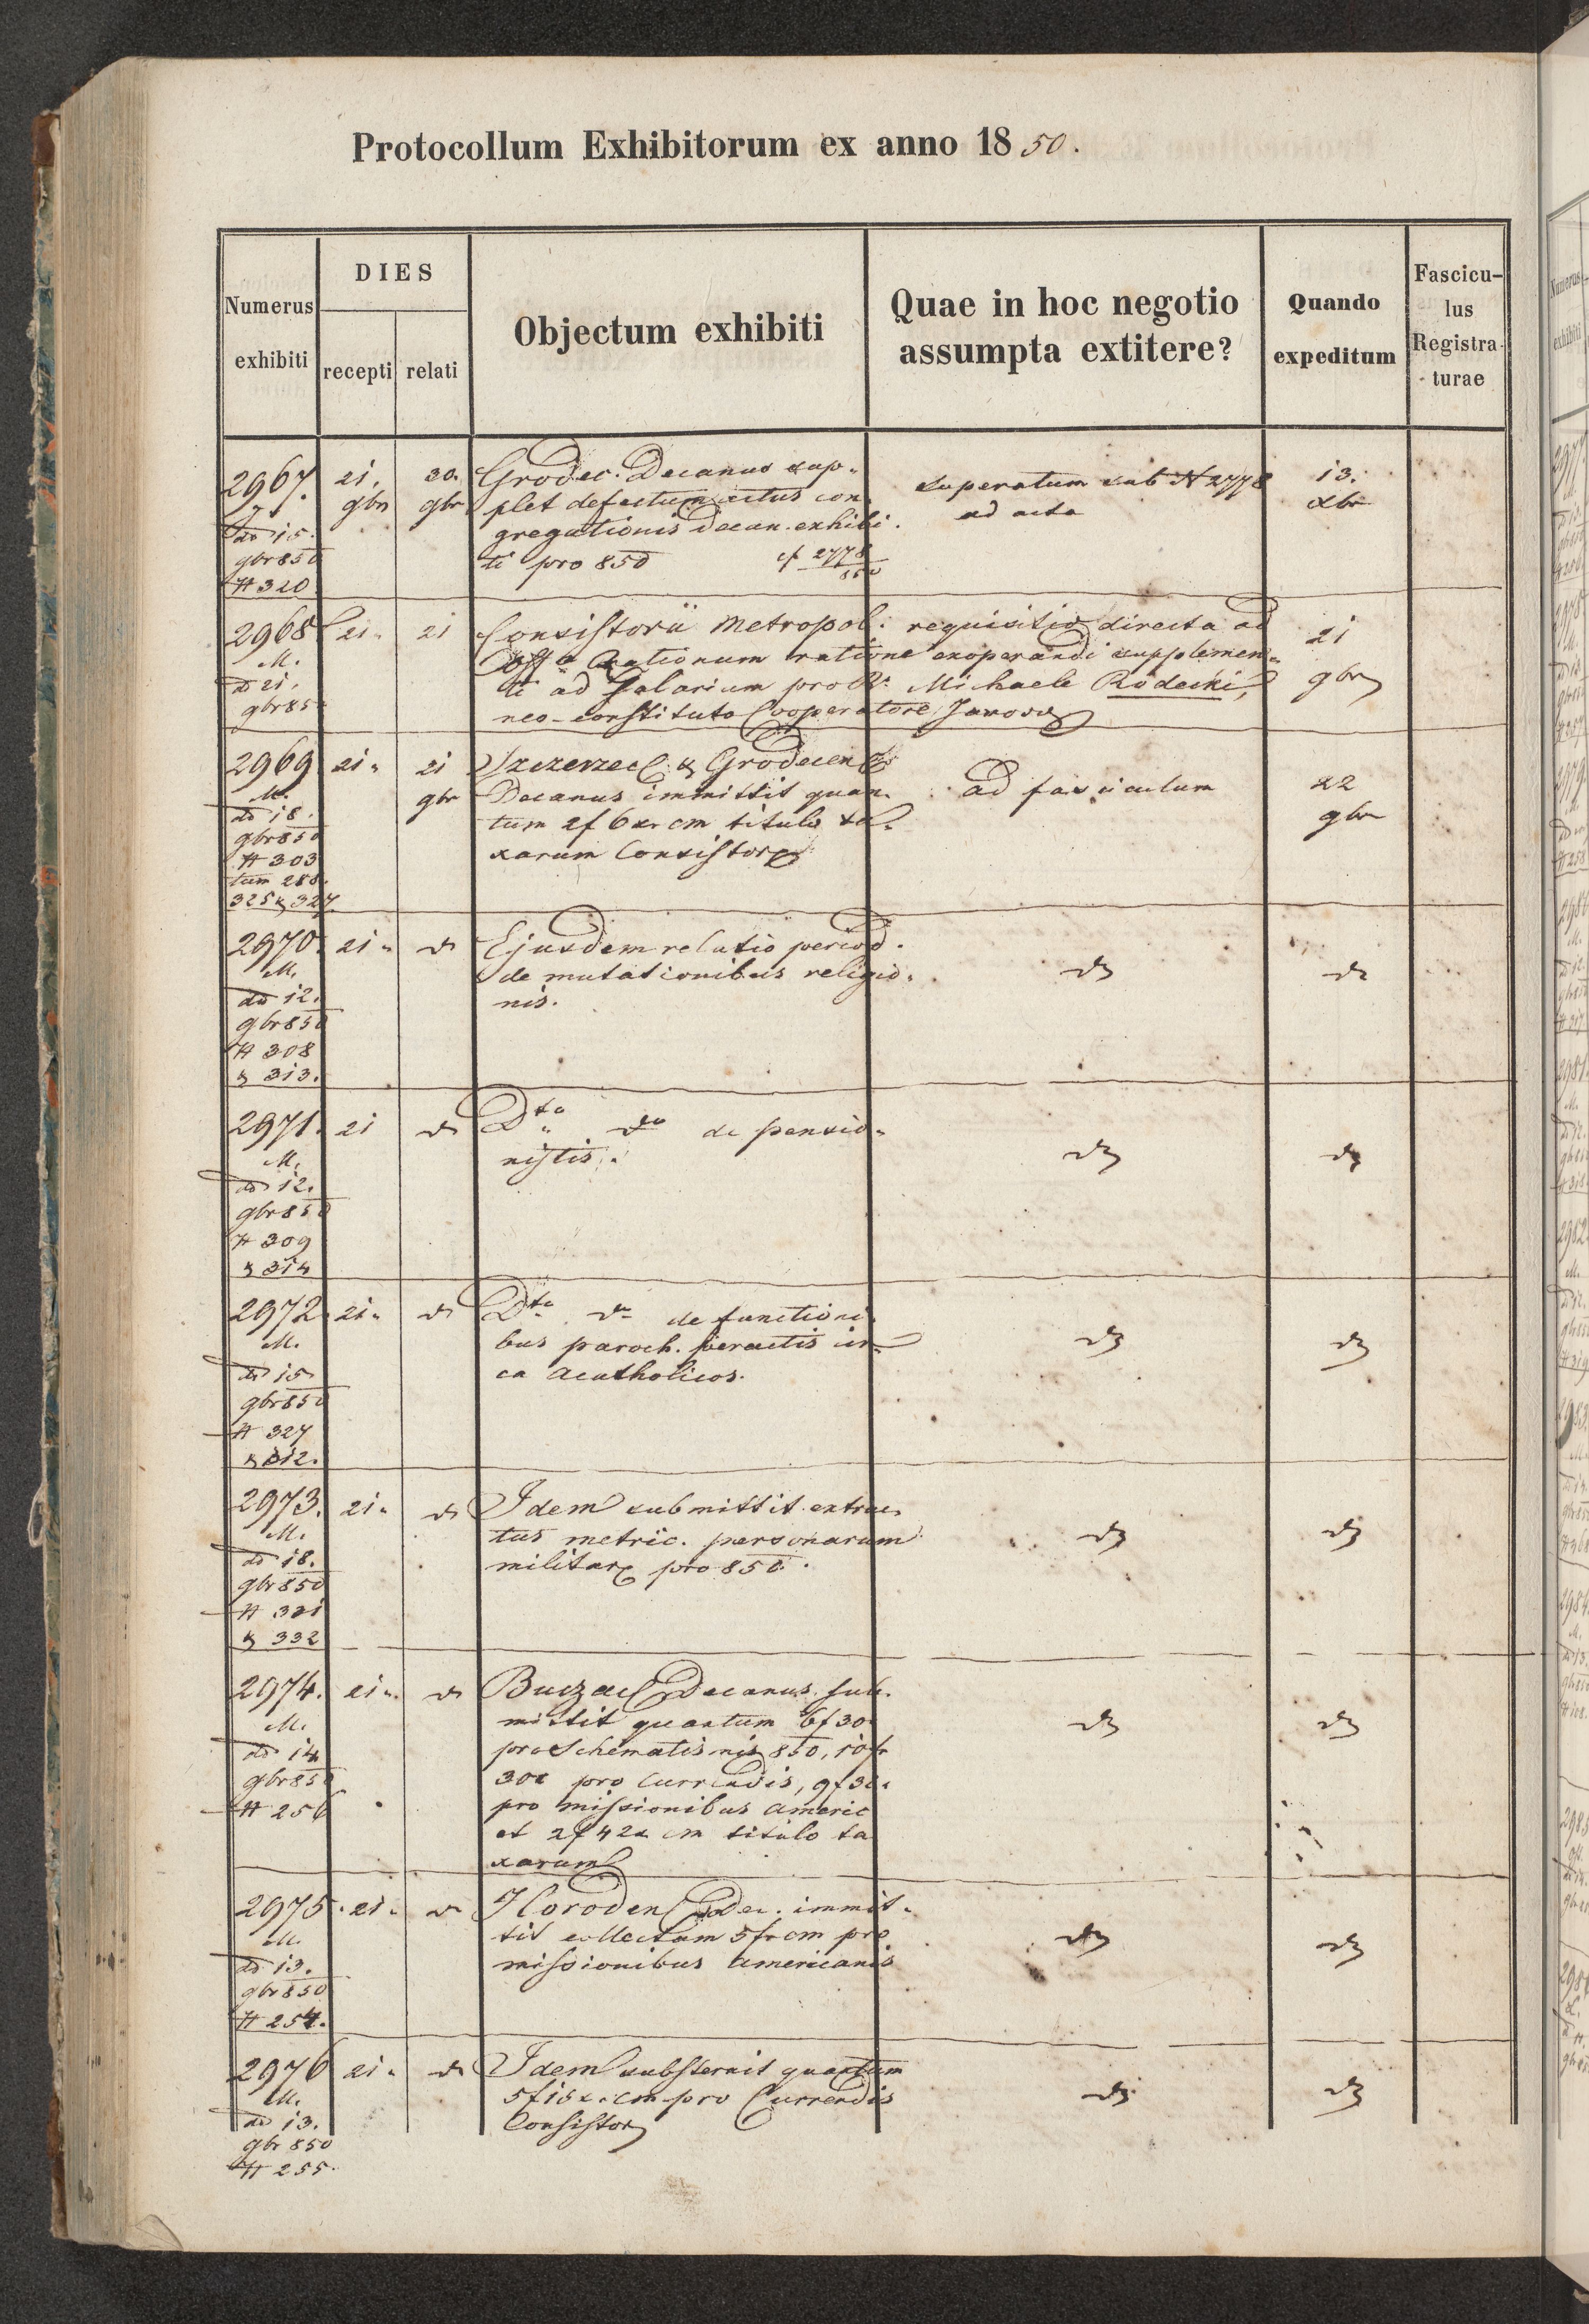 Protocollum Exhibitorum ex anno 1850.
Numerus exhibiti
DIES
recepti
relati
Objectum exhibiti
Quae in hoc negotio
assumpta extitere?
Quando
expeditum
Fascicu-
lus
Registra-
turae
2967.
dd 15.
gbr 850
# 320
21.
gbr
30.
gbr
Grodec. Decanus sup-
plet defectum actus con-
gregationis decan. exhibi-
ti pro 850 cf 2778/850
superatum sub N 2778
ad acta
13.
xbr
2968
M.
dd 21.
gbr 85
21.
21
Consistorii Metropol. requisitio directa ad
Rationum ratione exoperandi supplemen-
ti ad Salarium pro R. Michaele Rodecki,
neo-constituto Cooperatore Janov
21
gbr
2969
M.
dd 18.
gbr 850
# 303
tum 288.
325 & 327.
21.
21
gbr
Szczerzec & Grodecen
Decanus immittit quan-
tum 2f 6xr cm titulo ta-
xarum Consistor
ad fasciculum
22
gbr
2970.
M.
dd 12.
gbr 850
# 308
& 313.
21.
do
Ejusdem relatio period.
de mutationibus religio-
nis.
do
do
2971.
M.
dd 12.
gbr 850
# 309
& 314
21
do
Dto do de pensio-
nistis.
do
do
2972.
M.
dd 15
gbr 850
# 327
& 312.
21.
do
Dto do de functioni-
bus paroch. peractis cir-
ca acatholicos.
do
do
2973.
M.
dd 18.
gbr 850
# 321
& 332
21.
do
Idem submittit extrac-
tus metric. personarum
militar pro 850.
do
do
2974.
M.
dd 14
gbr 850
# 256
21.
do
Buczac Decanus sub-
mittit quantum 6f 30
pro Schematismis 850, 10f
30x pro Currendis, 9f 30x
pro missionibus americ
et 2f 42x cm titulo ta
xarum
do
do
2975.
M.
dd 13.
gbr 850
# 254.
21.
do
Horoden Dec. immit-
tit collectam 5f cm pro
missionibus americanis
do
do
2976
M.
dd 13.
gbr 850
# 255.
21.
do
Idem substernit quantum
5f 15x. cm pro Currendis
Consistor
do
do